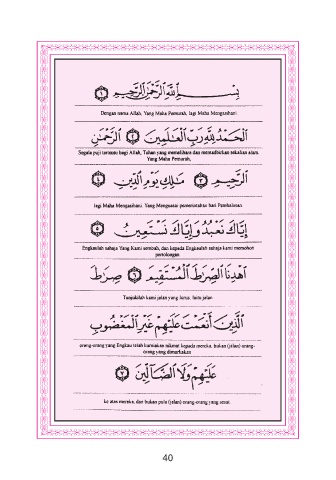 بِسْمِ اللَّهِ الرَّحْمَٰنِ الرَّحِيمِ ١
Dengan nama Allah, Yang Maha Pemurah, lagi Maha Mengasihani
الْحَمْدُ لِلَّهِ رَبِّ الْعَالَمِينَ ٢ الرَّحْمَٰنِ
Segala puji tertentu bagi Allah, Tuhan yang memelihara dan mentadbirkan sekalian alam.
Yang Maha Pemurah,
الرَّحِيمِ ٣ مَالِكِ يَوْمِ الدِّينِ ٤
lagi Maha Mengasihani. Yang Menguasai pemerintahan hari Pembalasan
إِيَّاكَ نَعْبُدُ وَإِيَّاكَ نَسْتَعِينُ ٥
Engkaulah sahaja Yang Kami sembah, dan kepada Engkaulah sahaja kami memohon
pertolongan
اهْدِنَا الصِّرَاطَ الْمُسْتَقِيمَ ٦ صِرَاطَ
Tunjukilah kami jalan yang lurus. Iaitu jalan
الَّذِينَ أَنْعَمْتَ عَلَيْهِمْ غَيْرِ الْمَغْضُوبِ
orang-orang yang Engkau telah kurniakan nikmat kepada mereka, bukan (jalan) orang-
orang yang dimurkakan
عَلَيْهِمْ وَلَا الضَّالِّينَ ٧
ke atas mereka, dan bukan pula (jalan) orang-orang yang sesat.
40